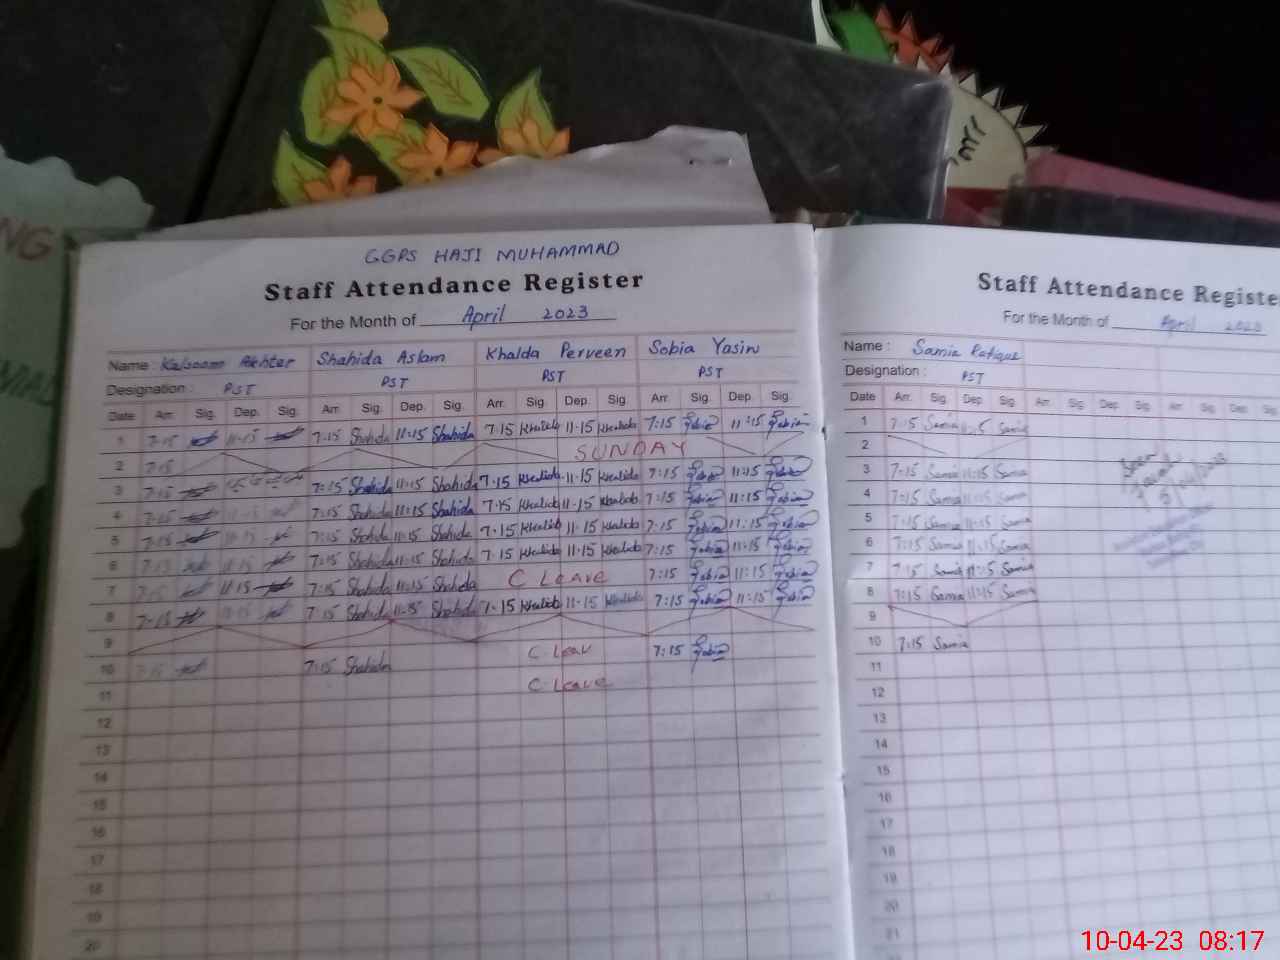 GGPS HAJI MUHAMMAD
Staff Attendance Register
For the Month of April 2023
Name : Kalsoom Akhtar Shahida Aslam Khalda Perveen Sobia Yasin
Designation : PST PST PST PST
Date Arr. Sig. Dep. Sig. Arr. Sig. Dep. Sig. Arr. Sig. Dep. Sig. Arr. Sig. Dep. Sig.
1 7-15 11-15 7:15 Shahida 11:15 Shahida 7-15 Khalida 11-15 Khalida 7:15 Sobia 11:15 Sobia
2 7-15 SUNDAY
3 7-15 7:15 Shahida 11:15 Shahida 7-15 Khalida 11-15 Khalida 7:15 Sobia 11:15 Sobia
4 7-15 11-15 7:15 Shahida 11:15 Shahida 7-15 Khalida 11-15 Khalida 7:15 Sobia 11:15 Sobia
5 7-15 11-15 7:15 Shahida 11:15 Shahida 7-15 Khalida 11-15 Khalida 7:15 Sobia 11:15 Sobia
6 7-15 11-15 7:15 Shahida 11:15 Shahida 7-15 Khalida 11-15 Khalida 7:15 Sobia 11:15 Sobia
7 7-15 11-15 7:15 Shahida 11:15 Shahida C Leave 7:15 Sobia 11:15 Sobia
8 7-15 11-15 7:15 Shahida 11:15 Shahida 7-15 Khalida 11-15 Khalida 7:15 Sobia 11:15 Sobia
9
10 7-15 7:15 Shahida C Leav 7:15 Sobia
11 C Leave
12
13
14
15
16
17
18
19
20
Staff Attendance Registe
For the Month of April 2023
Name : Samia Rafique
Designation : PST
Date Arr. Sig. Dep. Sig. Arr. Sig. Dep. Sig. Arr. Sig. Dep. Sig.
1 7:15 Samia 11:15 Samia
2
3 7:15 Samia 11:15 Samia
4 7:15 Samia 11:15 Samia
5 7:15 Samia 11:15 Samia
6 7:15 Samia 11:15 Samia
7 7:15 Samia 11:15 Samia
8 7:15 Samia 11:15 Samia
9
10 7:15 Samia
11
12
13
14
15
16
17
18
19
20
21
Seen
NG
10-04-23 08:17